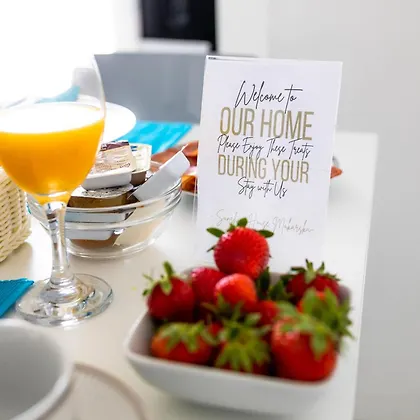 Welcome to
OUR HOME
Please Enjoy These Treats
DURING YOUR
Stay with Us